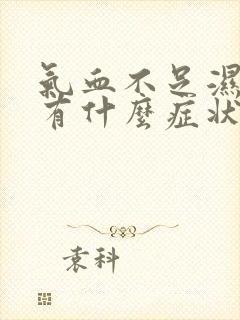 氣血不足濕
有什麼症狀
袁科